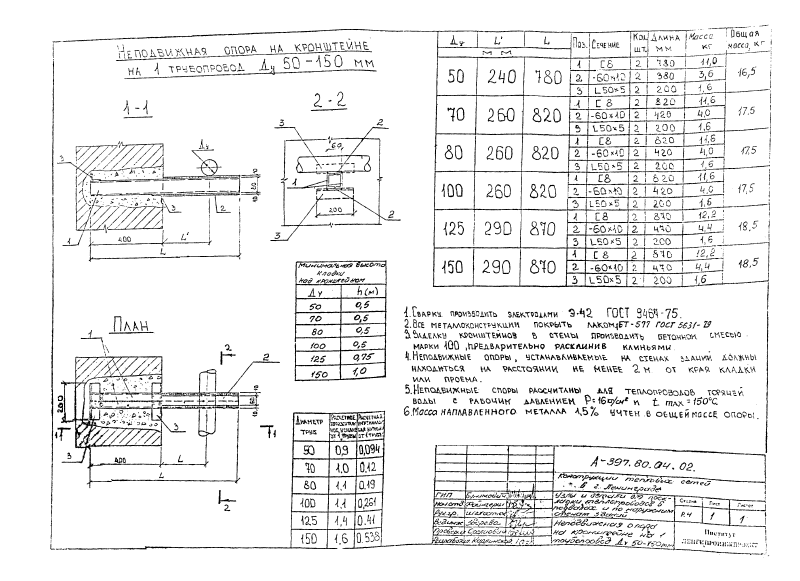 НЕПОДВИЖНАЯ ОПОРА НА КРОНШТЕЙНЕ
НА 1 ТРУБОПРОВОД Ду 50-150 мм
1-1
2-2
Ду
3
1
3
2
400
L'
L
3
2
60
1
200
3
2
Минимальная высота
кладки
над кронштейном
Ду h(м)
50 0,5
70 0,5
80 0,5
100 0,5
125 0,75
150 1,0
ПЛАН
1
2
2
200
1
1
3
3
400
L'
L
2
ДИАМЕТР
ТРУБ
50 0,9 0,094
70 1.0 0.12
80 1.1 0.19
100 1.1 0,261
125 1.4 0.41
150 1,6 0.538
Ду L' L Поз. Сечение Кол. шт. Длина мм Масса кг Общая масса, кг
мм
50 240 780 16,5
1 [8 2 780 11,0
2 -60×10 2 380 3,6
3 L50×5 2 200 1,6
70 260 820 17.5
1 [8 2 820 11,6
2 -60×10 2 420 4.0
3 L50×5 2 200 1,6
80 260 820 17,5
1 [8 2 820 11,6
2 -60×10 2 420 4,0
3 L50×5 2 200 1,6
100 260 820 17,5
1 [8 2 820 11,6
2 -60×10 2 420 4.0
3 L50×5 2 200 1,6
125 290 870 18,5
1 [8 2 870 12,2
2 -60×10 2 470 4.4
3 L50×5 2 200 1,6
150 290 870 18,5
1 [8 2 870 12,2
2 -60×10 2 470 4,4
3 L50×5 2 200 1,6
1. Сварку производить электродами Э-42 ГОСТ 9467-75.
2. Все металлоконструкции покрыть лаком БТ-577 ГОСТ 5631-79
3. Заделку кронштейнов в стены производить бетонной смесью
марки 100, предварительно расклинив клиньями
4. Неподвижные опоры, устанавливаемые на стенах зданий должны
находиться на расстоянии не менее 2 м от края кладки
или проема.
5. Неподвижные опоры рассчитаны для теплопроводов горячей
воды с рабочим давлением P=16 кг/см² и t max=150°C
6. Масса наплавленного металла 1,5% учтен в общей массе опоры.
А-397.80.04.02.
Конструкции тепловых сетей
в г. Ленинграде
Узлы и детали для прокладки теплопроводов в
подвалах и по наружным
стенам зданий
Неподвижная опора
на кронштейне на 1
трубопровод Ду 50-150мм
ГИП
Стадия Лист Листов
Р.Ч 1 1
Институт